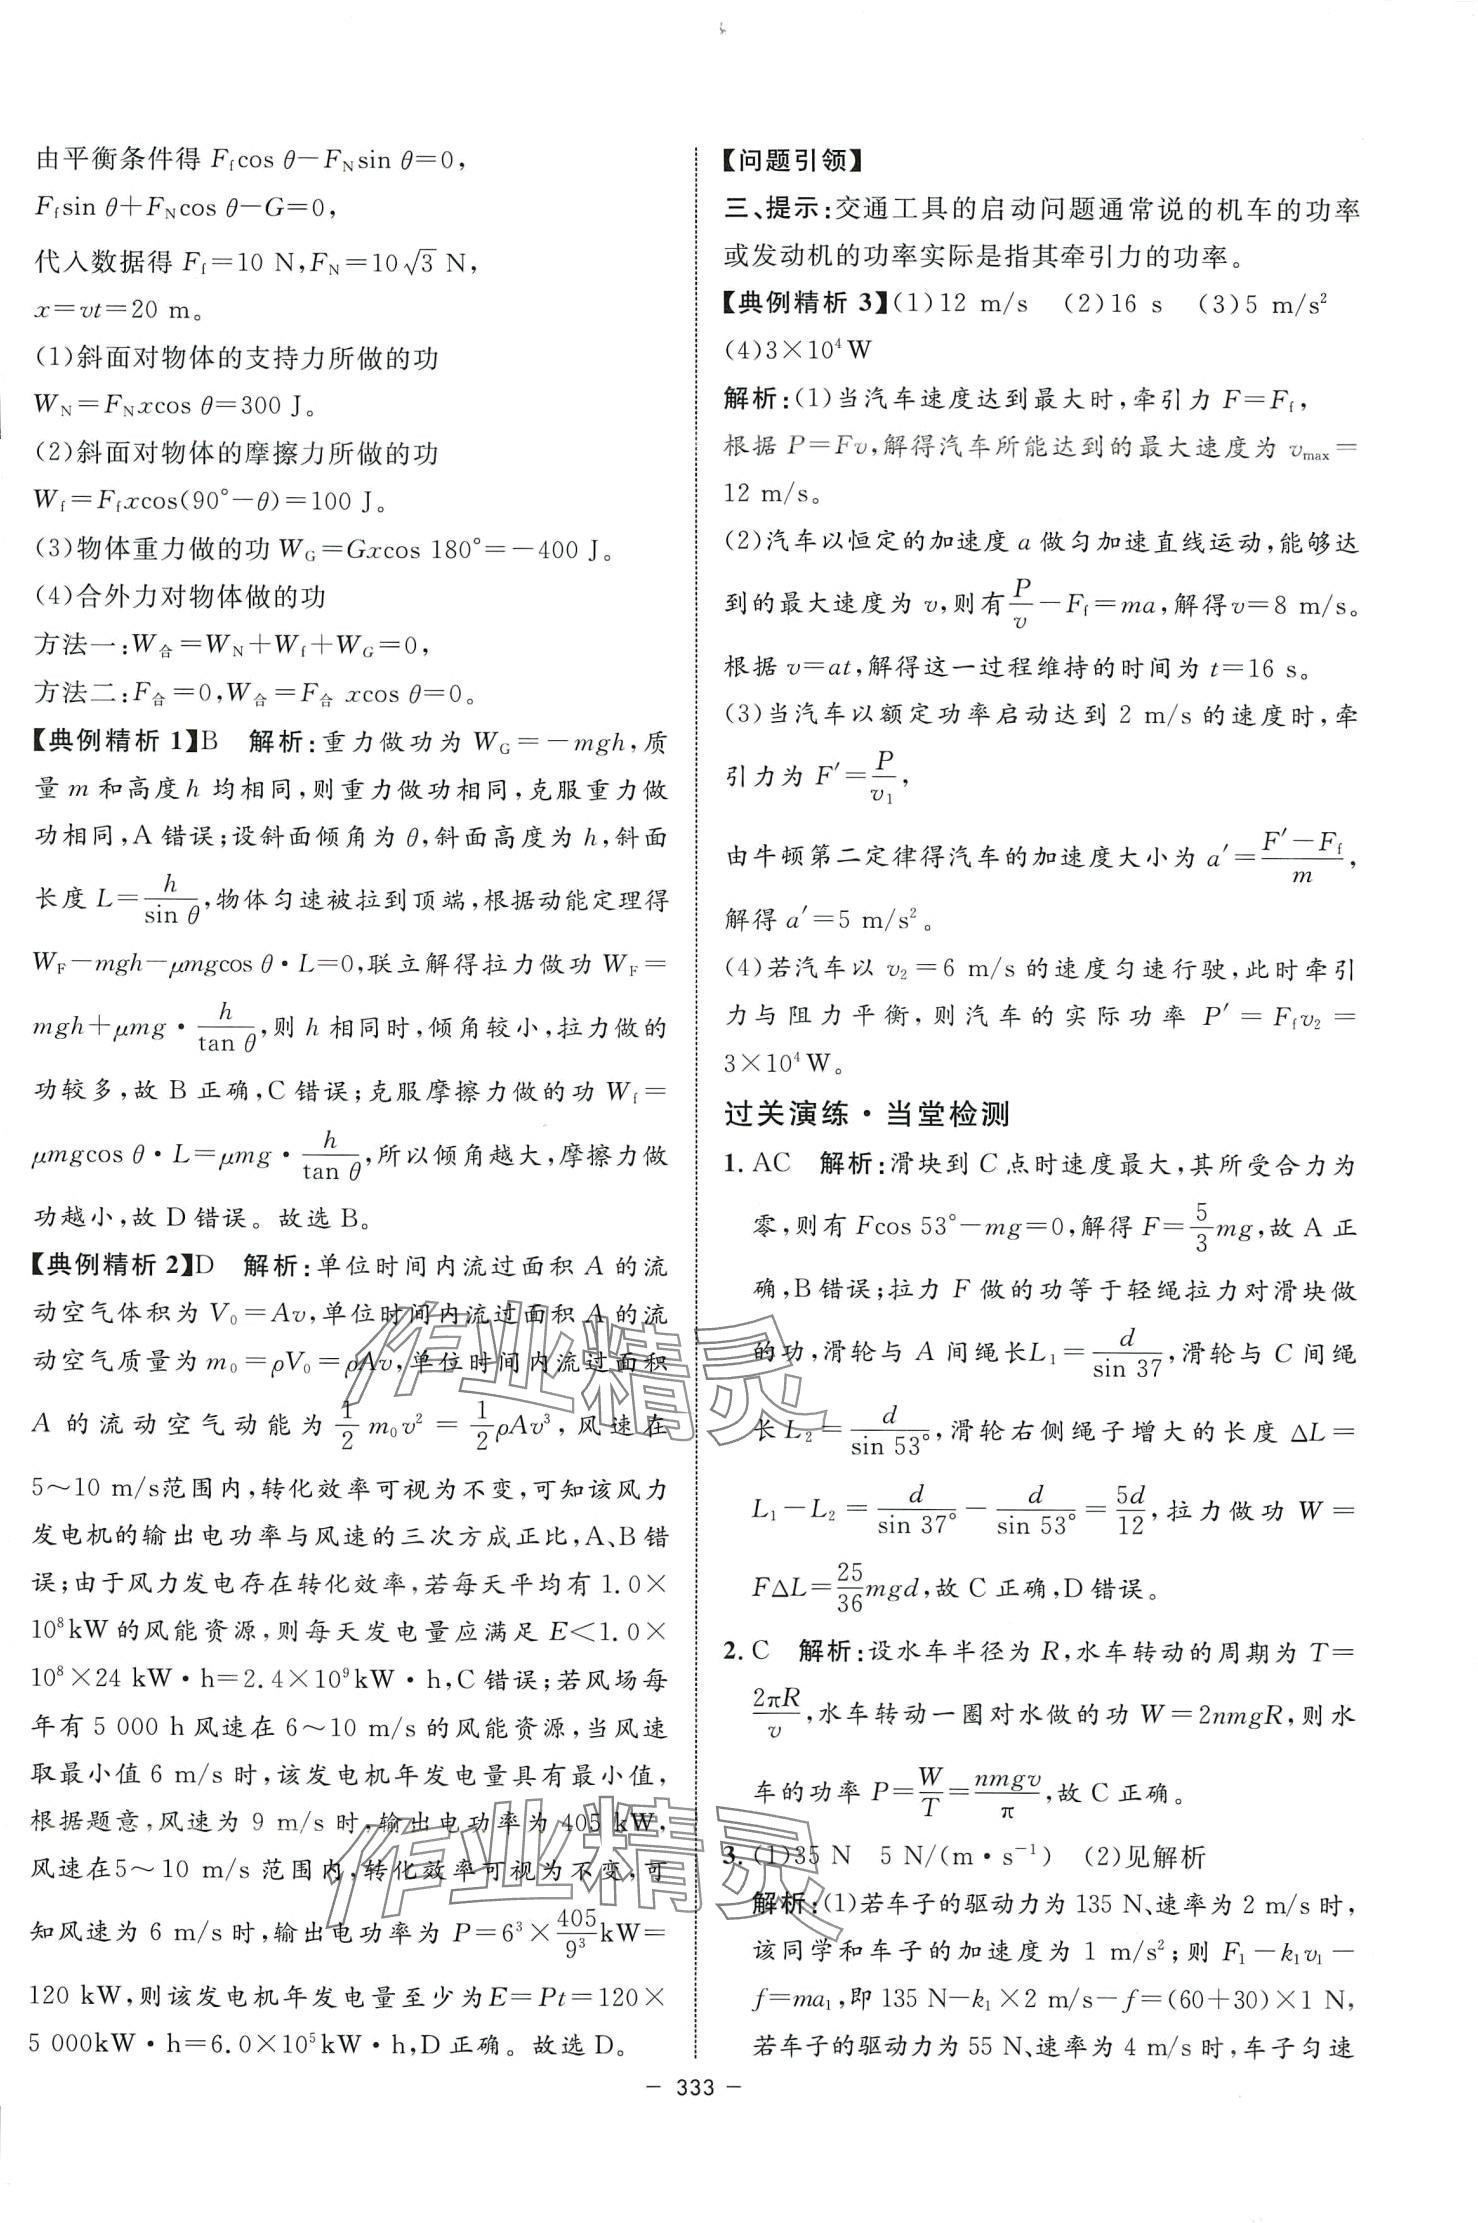 由平衡条件得 F_f cos θ－F_N sin θ＝0，
F_f sin θ＋F_N cos θ－G＝0，
代入数据得 F_f＝10 N，F_N＝10√3 N，
x＝vt＝20 m。
(1)斜面对物体的支持力所做的功
W_N＝F_N xcos θ＝300 J。
(2)斜面对物体的摩擦力所做的功
W_f＝F_f xcos(90°－θ)＝100 J。
(3)物体重力做的功 W_G＝Gxcos 180°＝－400 J。
(4)合外力对物体做的功
方法一：W_合＝W_N＋W_f＋W_G＝0，
方法二：F_合＝0，W_合＝F_合 xcos θ＝0。
【典例精析 1】B 解析：重力做功为 W_G＝－mgh，质
量 m 和高度 h 均相同，则重力做功相同，克服重力做
功相同，A 错误；设斜面倾角为 θ，斜面高度为 h，斜面
长度 L＝h/sin θ，物体匀速被拉到顶端，根据动能定理得
W_F－mgh－μmgcos θ·L＝0，联立解得拉力做功 W_F＝
mgh＋μmg·h/tan θ，则 h 相同时，倾角较小，拉力做的
功较多，故 B 正确，C 错误；克服摩擦力做的功 W_f＝
μmgcos θ·L＝μmg·h/tan θ，所以倾角越大，摩擦力做
功越小，故 D 错误。故选 B。
【典例精析 2】D 解析：单位时间内流过面积 A 的流
动空气体积为 V₀＝Av，单位时间内流过面积 A 的流
动空气质量为 m₀＝ρV₀＝ρAv，单位时间内流过面积
A 的流动空气动能为 1/2 m₀v²＝1/2 ρAv³，风速在
5～10 m/s范围内，转化效率可视为不变，可知该风力
发电机的输出电功率与风速的三次方成正比，A、B 错
误；由于风力发电存在转化效率，若每天平均有 1.0×
10⁸kW 的风能资源，则每天发电量应满足 E＜1.0×
10⁸×24 kW·h＝2.4×10⁹kW·h，C 错误；若风场每
年有 5 000 h 风速在 6～10 m/s 的风能资源，当风速
取最小值 6 m/s 时，该发电机年发电量具有最小值，
根据题意，风速为 9 m/s 时，输出电功率为 405 kW，
风速在5～10 m/s 范围内，转化效率可视为不变，可
知风速为 6 m/s 时，输出电功率为 P＝6³×405/9³kW＝
120 kW，则该发电机年发电量至少为E＝Pt＝120×
5 000kW·h＝6.0×10⁵kW·h，D 正确。故选 D。
【问题引领】
三、提示：交通工具的启动问题通常说的机车的功率
或发动机的功率实际是指其牵引力的功率。
【典例精析 3】(1)12 m/s (2)16 s (3)5 m/s²
(4)3×10⁴W
解析：(1)当汽车速度达到最大时，牵引力 F＝F_f，
根据 P＝Fv，解得汽车所能达到的最大速度为 v_max＝
12 m/s。
(2)汽车以恒定的加速度 a 做匀加速直线运动，能够达
到的最大速度为 v，则有P/v－F_f＝ma，解得v＝8 m/s。
根据 v＝at，解得这一过程维持的时间为 t＝16 s。
(3)当汽车以额定功率启动达到 2 m/s 的速度时，牵
引力为 F′＝P/v₁，
由牛顿第二定律得汽车的加速度大小为 a′＝(F′－F_f)/m，
解得 a′＝5 m/s²。
(4)若汽车以 v₂＝6 m/s 的速度匀速行驶，此时牵引
力与阻力平衡，则汽车的实际功率 P′＝F_f v₂＝
3×10⁴W。
过关演练·当堂检测
1. AC 解析：滑块到 C 点时速度最大，其所受合力为
零，则有 Fcos 53°－mg＝0，解得 F＝5/3mg，故 A 正
确，B 错误；拉力 F 做的功等于轻绳拉力对滑块做
的功，滑轮与 A 间绳长L₁＝d/sin 37，滑轮与 C 间绳
长 L₂＝d/sin 53°，滑轮右侧绳子增大的长度 ΔL＝
L₁－L₂＝d/sin 37°－d/sin 53°＝5d/12，拉力做功 W＝
FΔL＝25/36mgd，故 C 正确，D 错误。
2. C 解析：设水车半径为 R，水车转动的周期为 T＝
2πR/v，水车转动一圈对水做的功 W＝2nmgR，则水
车的功率 P＝W/T＝nmgv/π，故 C 正确。
3. (1)35 N 5 N/(m·s⁻¹) (2)见解析
解析：(1)若车子的驱动力为 135 N、速率为 2 m/s 时，
该同学和车子的加速度为 1 m/s²；则 F₁－k₁v₁－
f＝ma₁，即 135 N－k₁×2 m/s－f＝(60＋30)×1 N，
若车子的驱动力为 55 N、速率为 4 m/s 时，车子匀速
－ 333 －
作业精灵
作业精灵